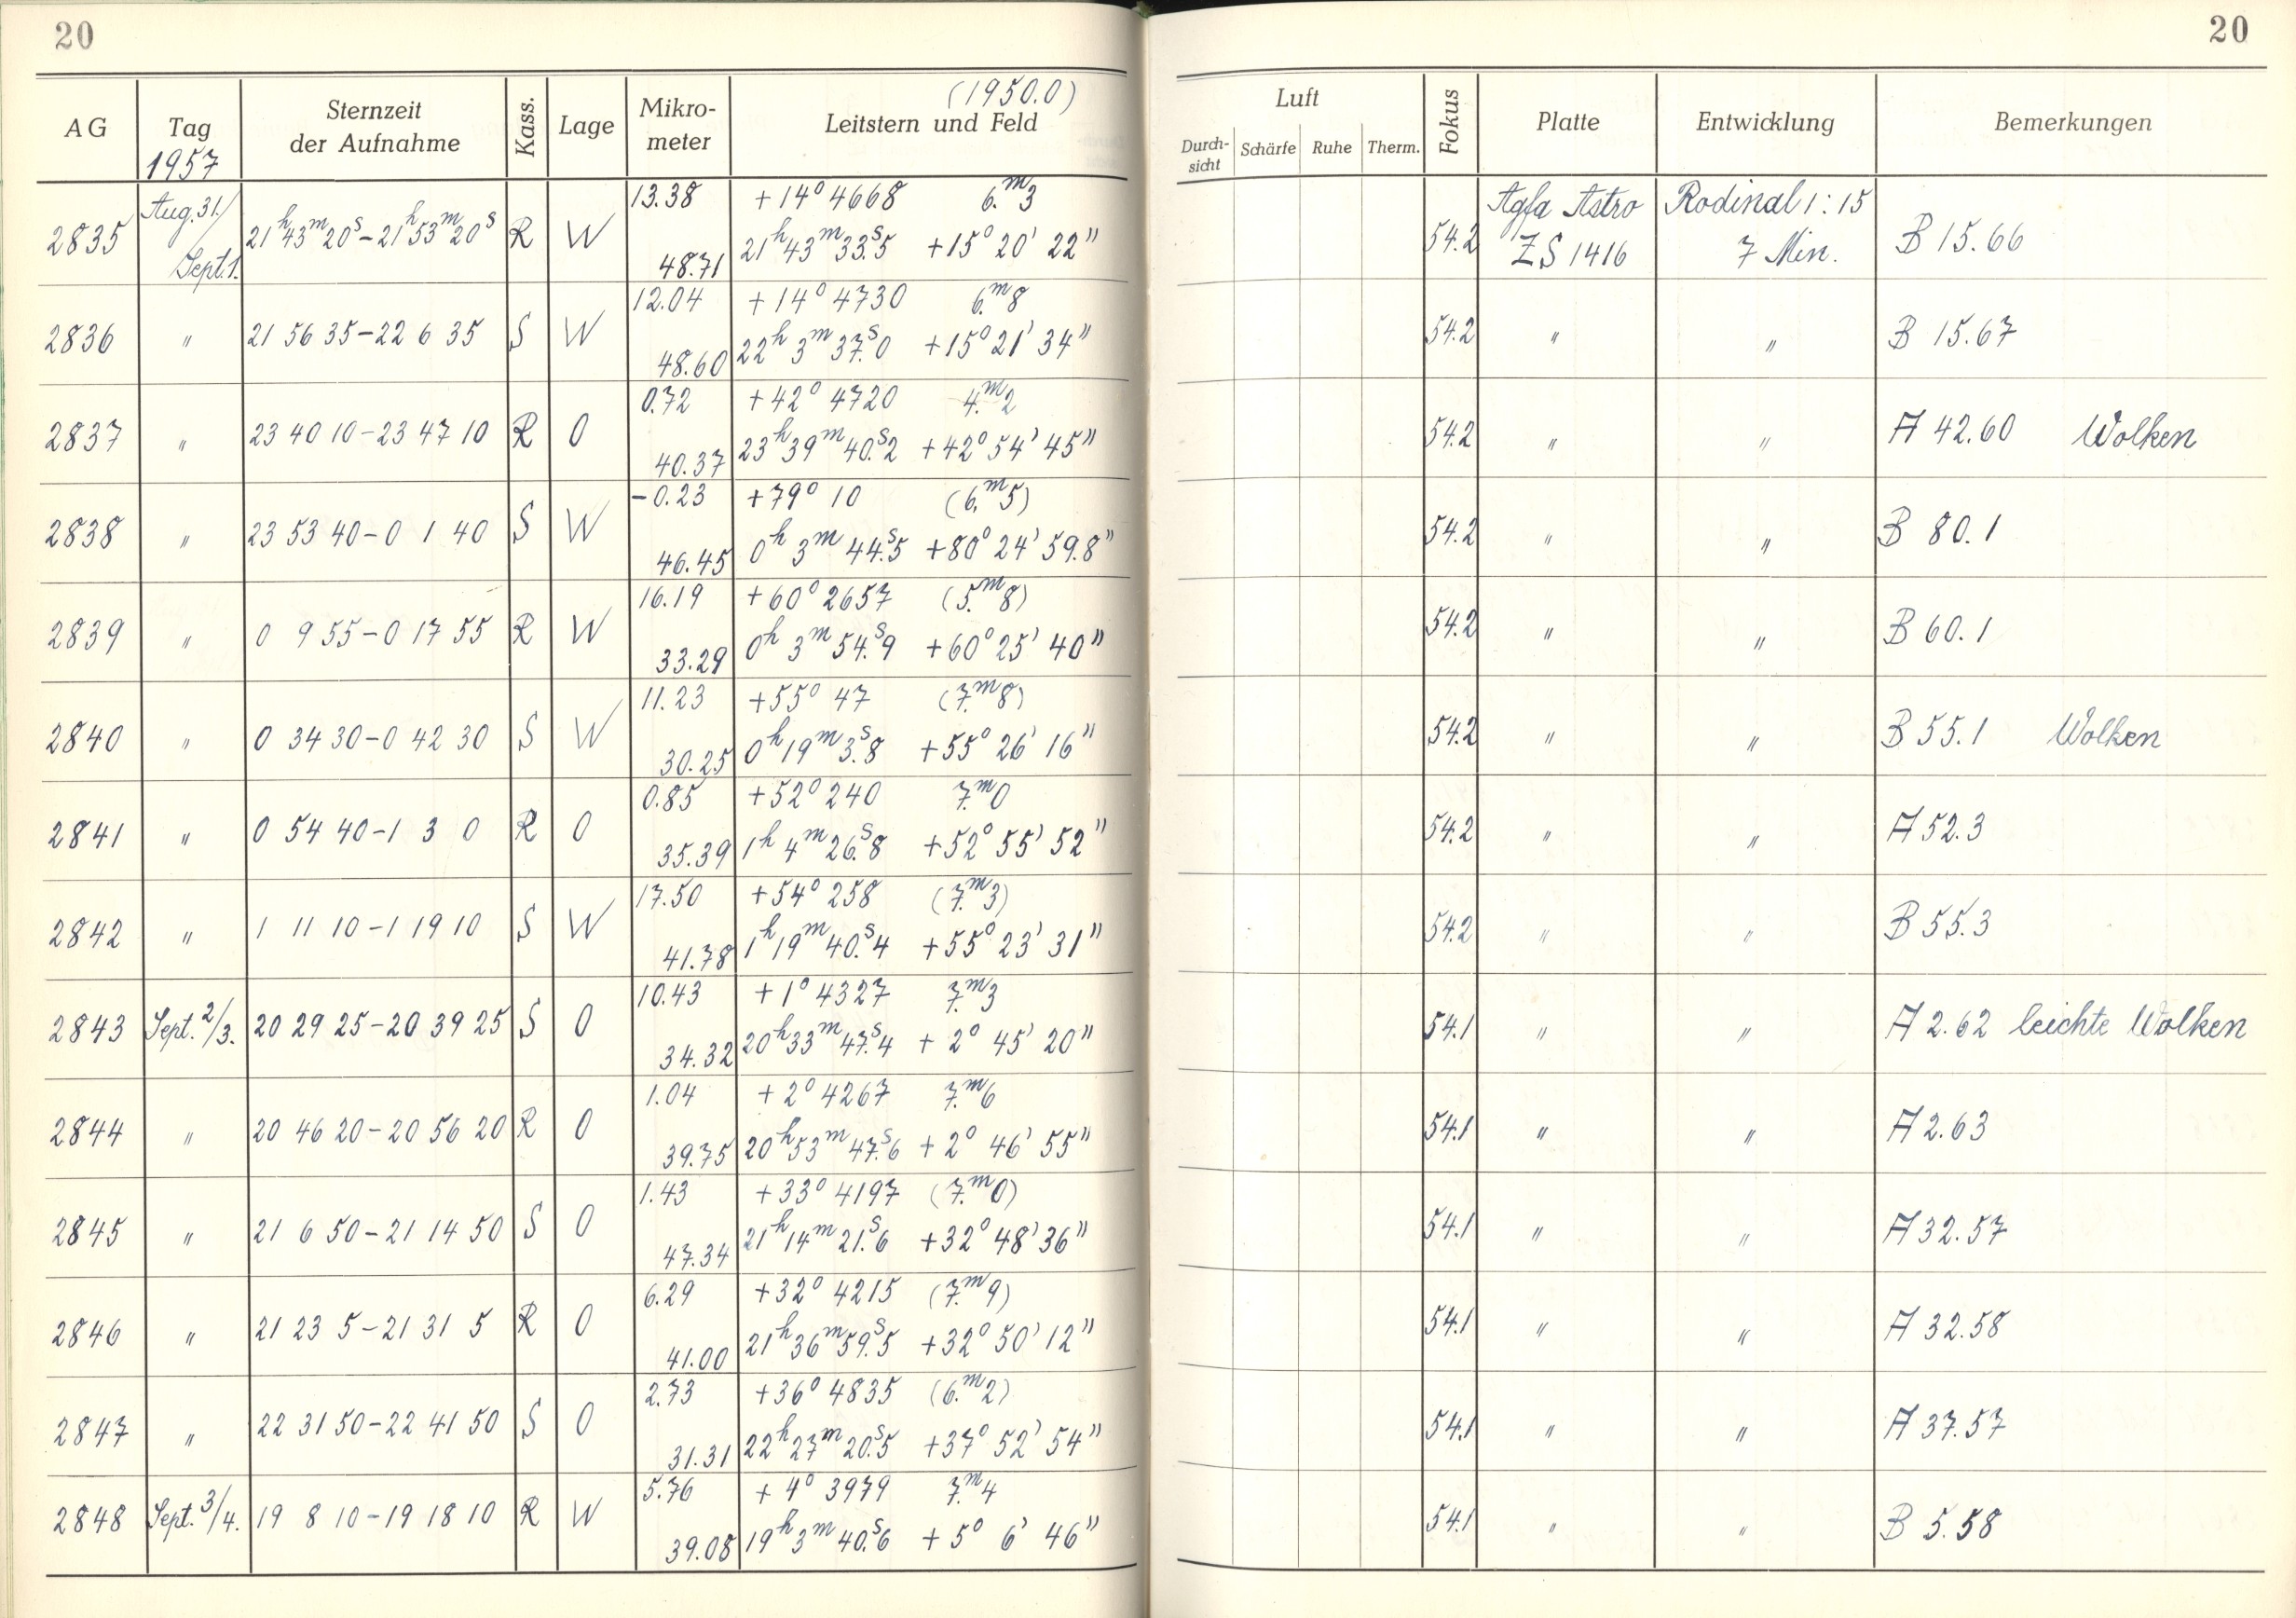 20
20
(1950.0)
AG
Tag
1957
Sternzeit
der Aufnahme
Kass.
Lage
Mikro-
meter
Leitstern und Feld
Luft
Durch-
sicht
Schärfe
Ruhe
Therm.
Fokus
Platte
Entwicklung
Bemerkungen
2835 Aug. 31./ Sept. 1. 21h 43m 20s – 21h 53m 20s R W 13.38 +14° 4668 6.m3
48.71 21h 43m 33.s5 +15° 20' 22" 54.2 Agfa Astro ZS 1416 Rodinal 1:15 7 Min. B 15.66
2836 " 21 56 35 – 22 6 35 S W 12.04 +14° 4730 6.m8
48.60 22h 3m 37.s0 +15° 21' 34" 54.2 " " B 15.67
2837 " 23 40 10 – 23 47 10 R O 0.72 +42° 4720 4.m2
40.37 23h 39m 40.s2 +42° 54' 45" 54.2 " " A 42.60 Wolken
2838 " 23 53 40 – 0 1 40 S W -0.23 +79° 10 (6.m5)
46.45 0h 3m 44.s5 +80° 24' 59.8" 54.2 " " B 80.1
2839 " 0 9 55 – 0 17 55 R W 16.19 +60° 2657 (5.m8)
33.29 0h 3m 54.s9 +60° 25' 40" 54.2 " " B 60.1
2840 " 0 34 30 – 0 42 30 S W 11.23 +55° 47 (7.m8)
30.25 0h 19m 3.s8 +55° 26' 16" 54.2 " " B 55.1 Wolken
2841 " 0 54 40 – 1 3 0 R O 0.85 +52° 240 7.m0
35.39 1h 4m 26.s8 +52° 55' 52" 54.2 " " A 52.3
2842 " 1 11 10 – 1 19 10 S W 17.50 +54° 258 (7.m3)
41.78 1h 19m 40.s4 +55° 23' 31" 54.2 " " B 55.3
2843 Sept. 2/3. 20 29 25 – 20 39 25 S O 10.43 +1° 4327 7.m3
34.32 20h 33m 47.s4 +2° 45' 20" 54.1 " " A 2.62 leichte Wolken
2844 " 20 46 20 – 20 56 20 R O 1.04 +2° 4267 7.m6
39.75 20h 53m 47.s6 +2° 46' 55" 54.1 " " A 2.63
2845 " 21 6 50 – 21 14 50 S O 1.43 +33° 4197 (7.m0)
47.34 21h 14m 21.s6 +32° 48' 36" 54.1 " " A 32.57
2846 " 21 23 5 – 21 31 5 R O 6.29 +32° 4215 (7.m9)
41.00 21h 36m 59.s5 +32° 50' 12" 54.1 " " A 32.58
2847 " 22 31 50 – 22 41 50 S O 2.73 +36° 4835 (6.m2)
31.31 22h 27m 20.s5 +37° 52' 54" 54.1 " " A 37.57
2848 Sept. 3/4. 19 8 10 – 19 18 10 R W 5.76 +4° 3979 7.m4
39.08 19h 3m 40.s6 +5° 6' 46" 54.1 " " B 5.58